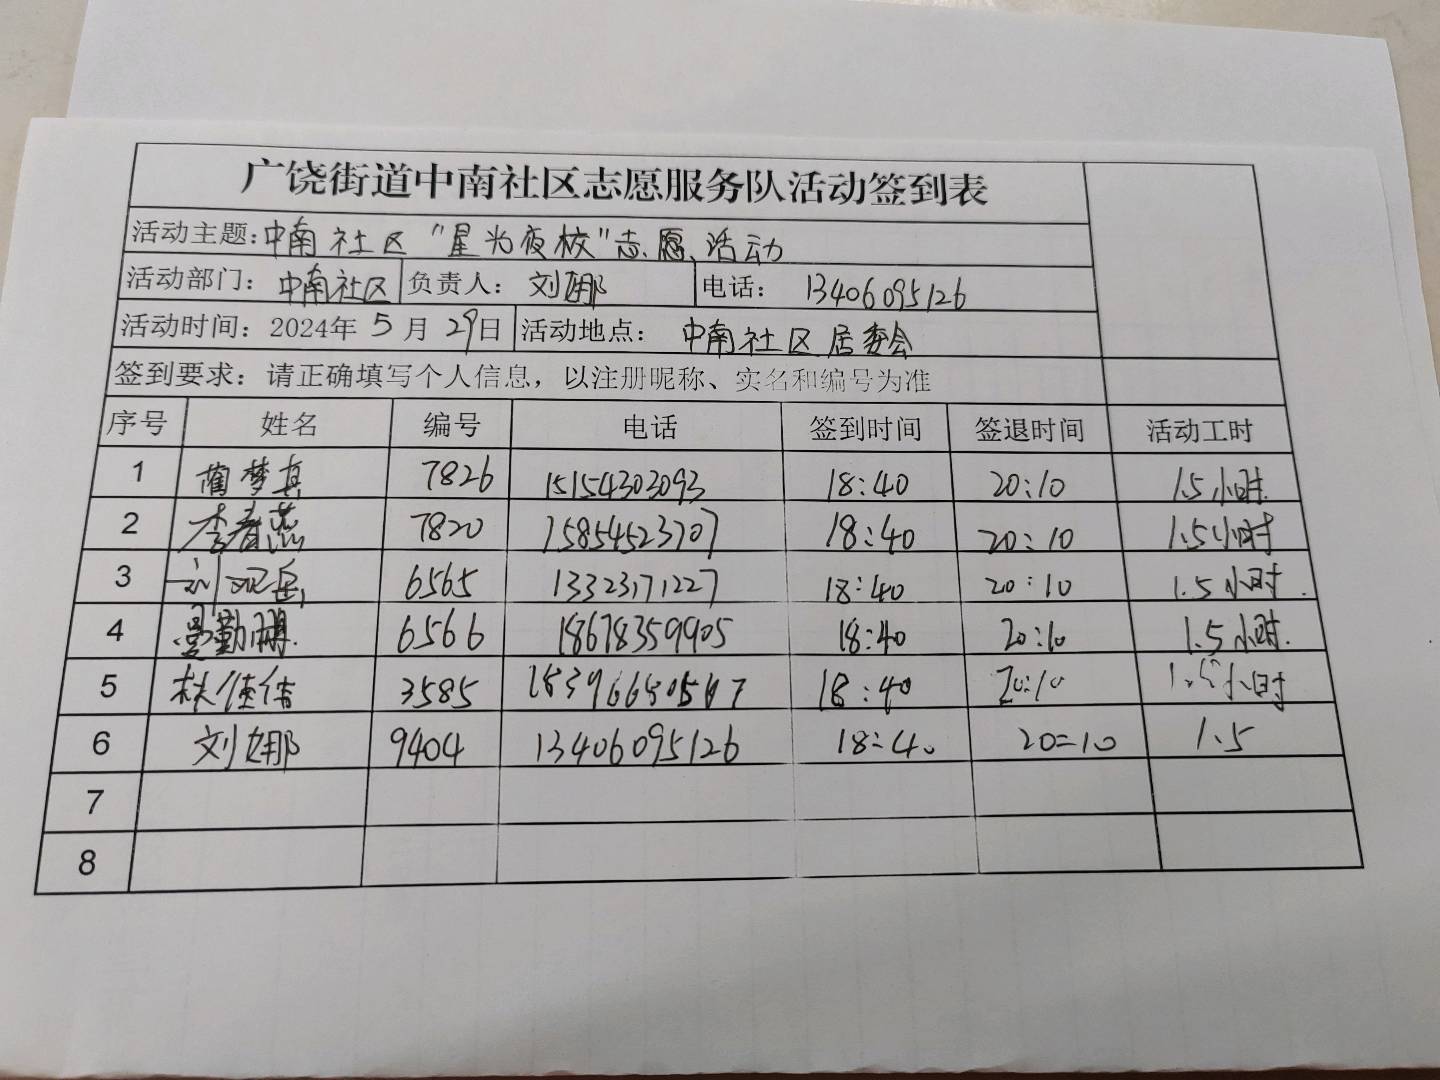 广饶街道中南社区志愿服务队活动签到表
活动主题:中南社区"星光夜校"志愿活动
活动部门: 中南社区 负责人: 刘娜 电话: 13406095126
活动时间: 2024年 5 月 29日 活动地点: 中南社区居委会
签到要求: 请正确填写个人信息，以注册昵称、实名和编号为准
序号 姓名 编号 电话 签到时间 签退时间 活动工时
1 蔺梦真 7826 15154303093 18:40 20:10 1.5小时.
2 李春燕 7820 15854523707 18:40 20:10 1.5小时
3 刘 6565 13323171227 18:40 20:10 1.5小时.
4 勤鹏 6566 18678359905 18:40 20:10 1.5小时.
5 3585 18:40 20:10 1.5小时
6 刘娜 9404 13406095126 18:40 20:10 1.5
7
8